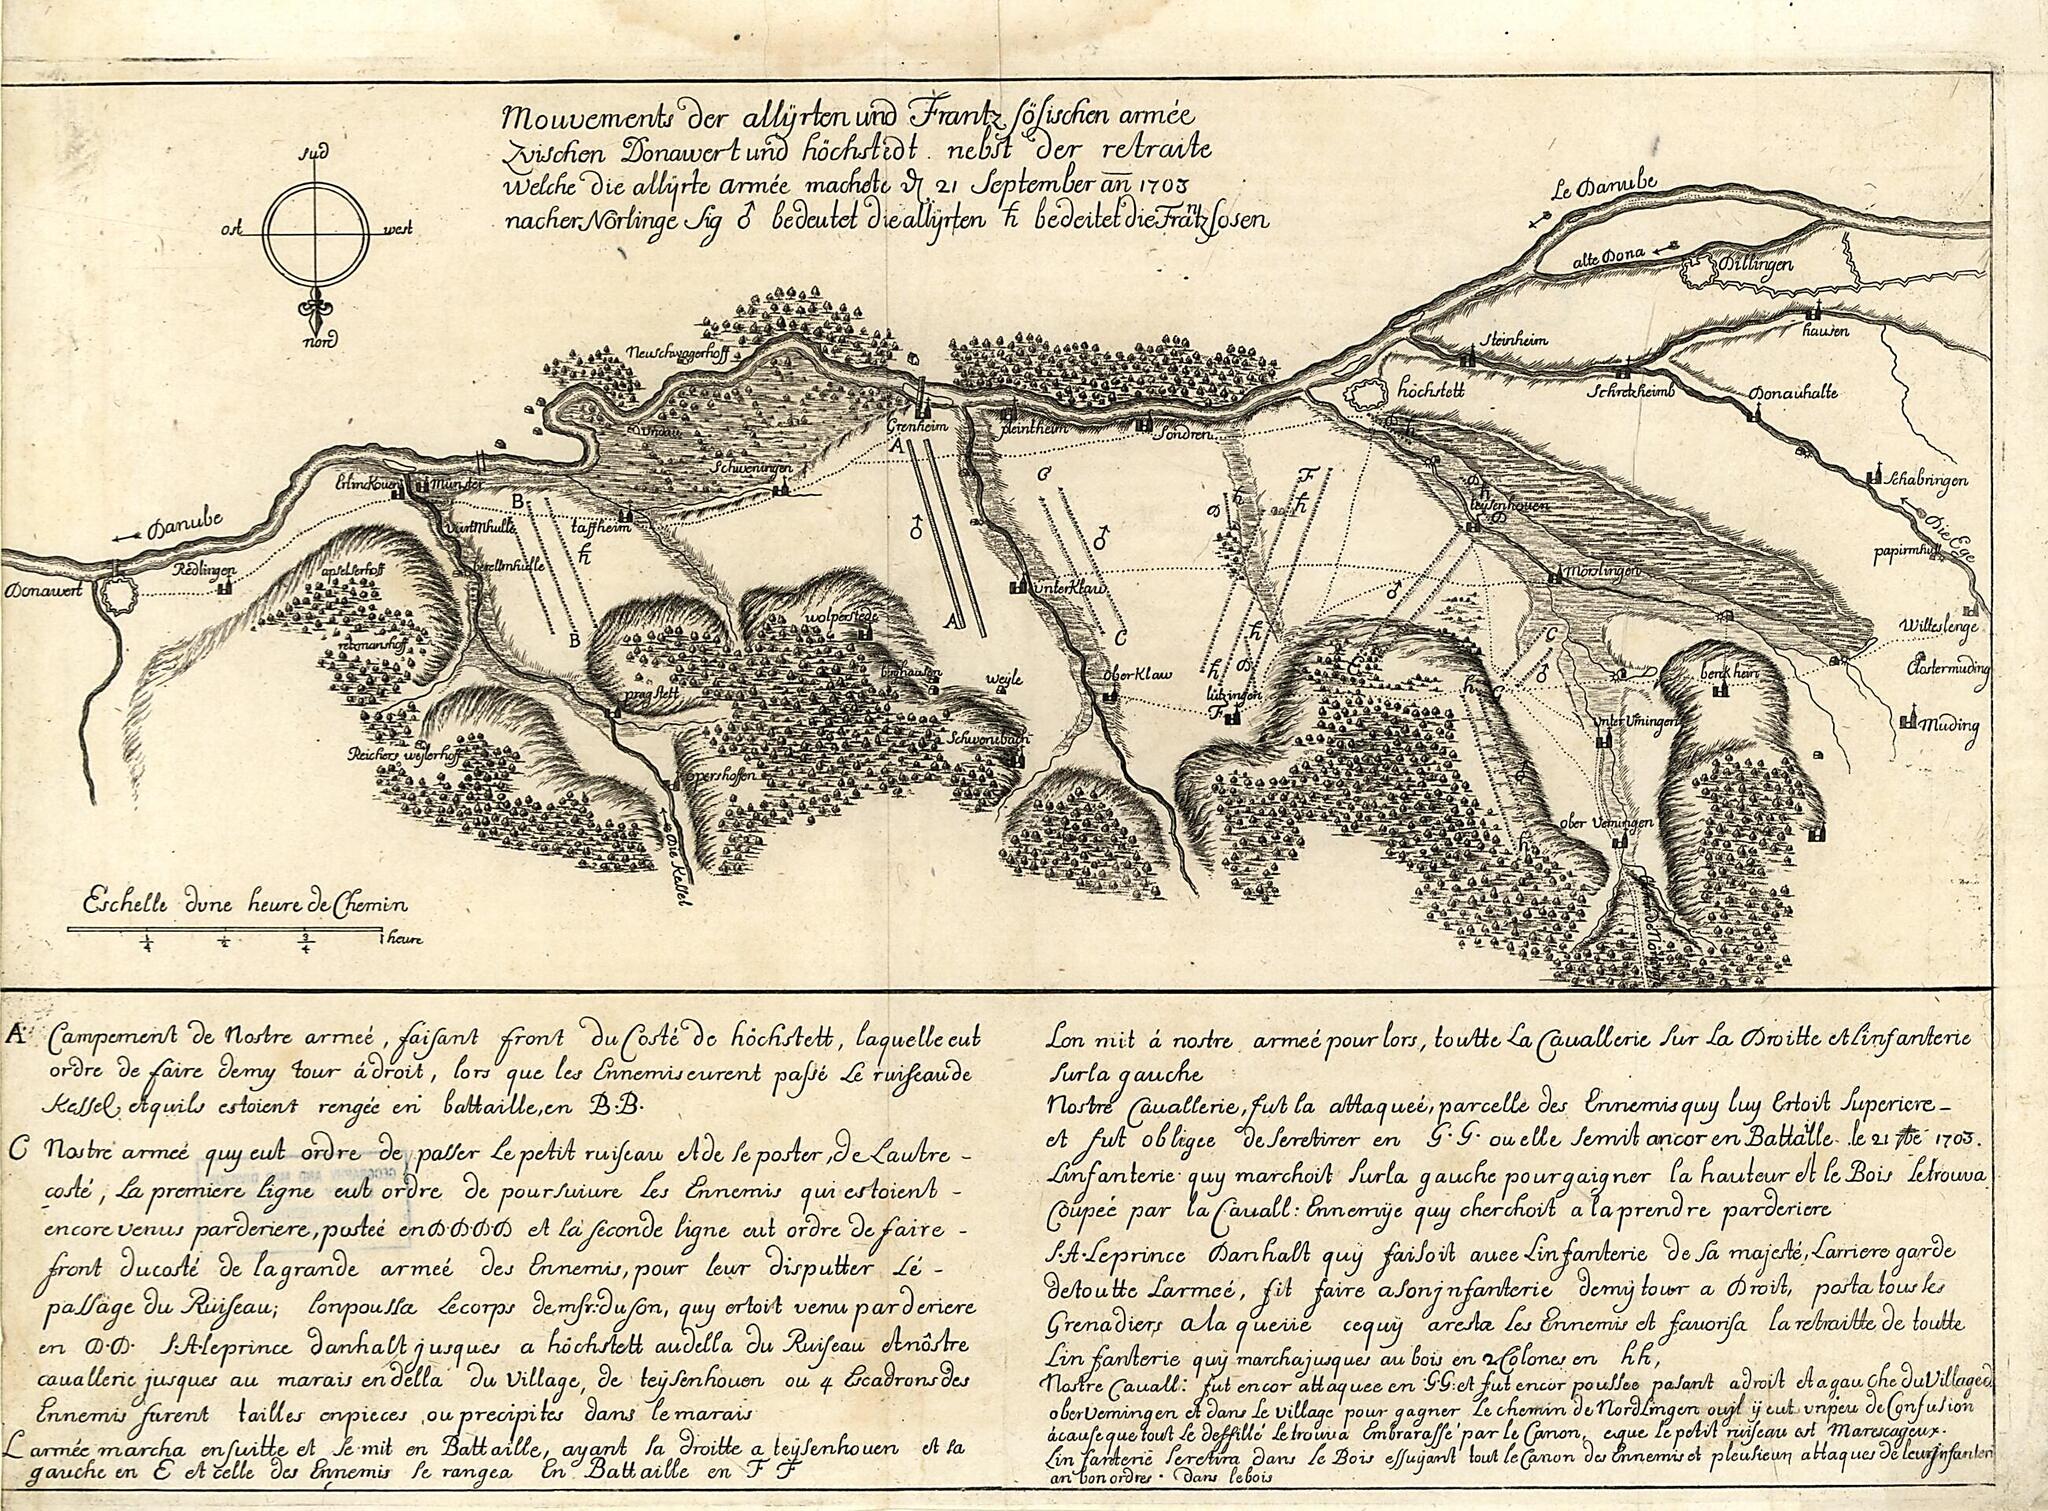 Mouvements der allÿrten und Frantz sösischen armée
Zvischen Donawert und höchstedt. nebst der retraite
welche die allÿrte armée machete 21 September an 1703
nacher Nörlinge Sig ♂ bedeutet die allÿrten ♄ bedeitet die Frantzsosen
sud
ost
west
nord
Le Danube
alte Dona
Dillingen
Steinheim
hausen
höchstett
Schretzheimb
Donauhalte
Schabringen
Die Ege
papirmhull
Witteslenge
Clostermuding
Muding
Neuschwagerhoff
Undau
Grenheim
pleintheim
Sondren
Schweningen
Erlinckouen
Munster
taffheim
vurtMhulle
Danube
Redlingen
Donawert
apfelserhoff
retzmanshoff
wolperstede
berghausen
weyle
Schwenebach
pragstett
Reichers weÿlerhoff
oppershoffen
Die Kessel
unterKlaw
ober Klaw
lützingen
teÿsenhouen
Mörslingen
benkhein
unter Umingen
ober Vemingen
A
A
B
B
C
C
D
D
F
F
Eschelle dvne heure de Chemin
1/4 1/2 3/4 1 heure
A Campement de Nostre armeé, faisant front du Costé de höchstett, laquelle eut
ordre de faire demy tour ádroit, lors que les Ennemis eurent passé Le ruisseau de
Kessel, et quils estoient rengée en battaille, en B.B.
C Nostre armeé quy eut ordre de passer Le petit ruiseau et de se poster, de Lautre -
costé, La premiere ligne eut ordre de poursuiure Les Ennemis qui estoient -
encore venus parderiere, posteé en D.D.D.D et la seconde ligne eut ordre de faire -
front ducosté de lagrande armeé des Ennemis, pour leur disputter Lé -
passage du Ruiseau; lonpoussa Lecorps demsr: duson, quy ertoit venu par deriere
en D.D. S.A.leprince danhalt jusques a höchstett audella du Ruiseau et nôstre
cauallerie jusques au marais en della du Village, de teÿsenhouen ou 4 Escadrons des
Ennemis furent tailles en pieces, ou precipites dans le marais
L armée marcha ensuitte et se mit en Battaille, ayant sa droitte a teÿsenhouen et sa
gauche en E et celle des Ennemis se rangea En Battaille en F F
Lon mit á nostre armeé pour lors, toutte La Cauallerie sur La Droitte et Linfanterie
sur la gauche
Nostre Cauallerie, fut la attaqueé, parcelle des Ennemis quy luy Ertoit Superiere -
et fut obligee de se retirer en G.G. ou elle semit ancor en Battalle. le 21 7bé 1703.
Linfanterie quy marchoit sur la gauche pour gaigner la hauteur et le Bois Le trouva
Coupéé par la Cauall: Ennemÿe quy cherchoit a la prendre parderiere
S.A. Leprince Danhalt quÿ faisoit auee Linfanterie de sa majesté, Larriere garde
detoutte Larmeé, fit faire a son jnfanterie demÿ tour a Droit, posta tous les
Grenadiers a la queüe cequÿ aresta les Ennemis et fauorisa la retraitte de toutte
Lin fanterie quÿ marcha jusques au bois en 2 Colones en hh,
Nostre Cauall: fut encor attaquee en G.G: et fut encor poussee pasant adroit et a gauche du Villaged
obervemingen et dans Le village pour gagner Le chemin de Nordlingen oujl ÿ eut vnpeu de Confusion
ácause que tout Le deffillé Le trouva Embrarassé par le Canon, eque le petit ruiseau est Marescageux.
Lin fanterie se retira dans Le Bois essuÿant tout le Canon des Ennemis et pleusieurs attaques de leur jnfanteri
an bon ordres. dans le bois